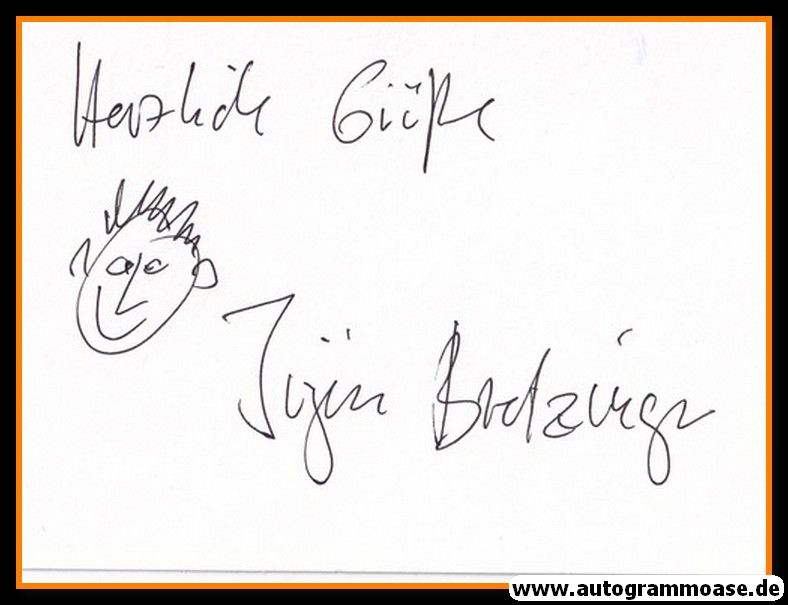 Herzliche Grüße
Jürgen Bretzinger
www.autogrammoase.de